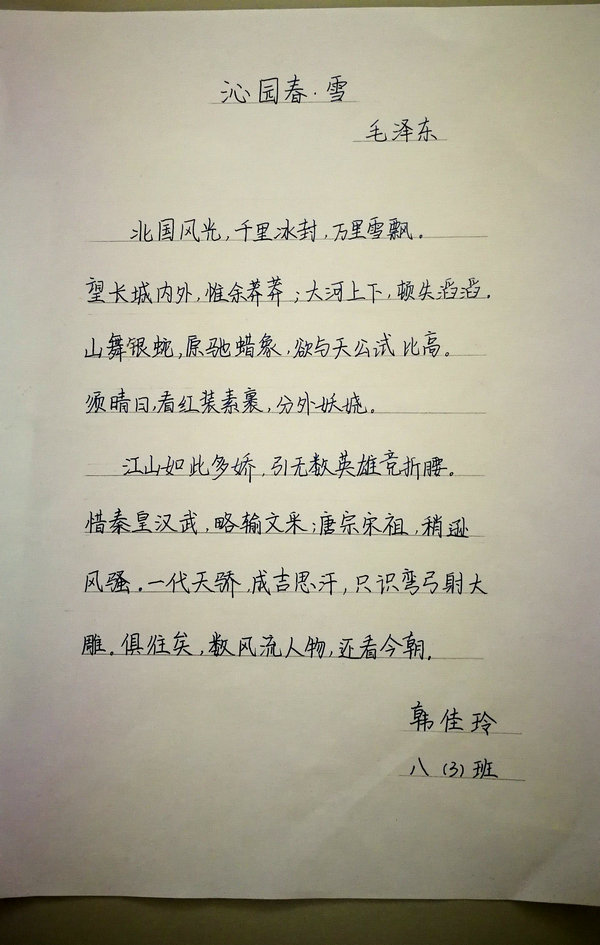 沁园春·雪
毛泽东
北国风光,千里冰封,万里雪飘。
望长城内外,惟余莽莽;大河上下,顿失滔滔。
山舞银蛇,原驰蜡象,欲与天公试比高。
须晴日,看红装素裹,分外妖娆。
江山如此多娇,引无数英雄竞折腰。
惜秦皇汉武,略输文采;唐宗宋祖,稍逊
风骚。一代天骄,成吉思汗,只识弯弓射大
雕。俱往矣,数风流人物,还看今朝。
韩佳玲
八(3)班